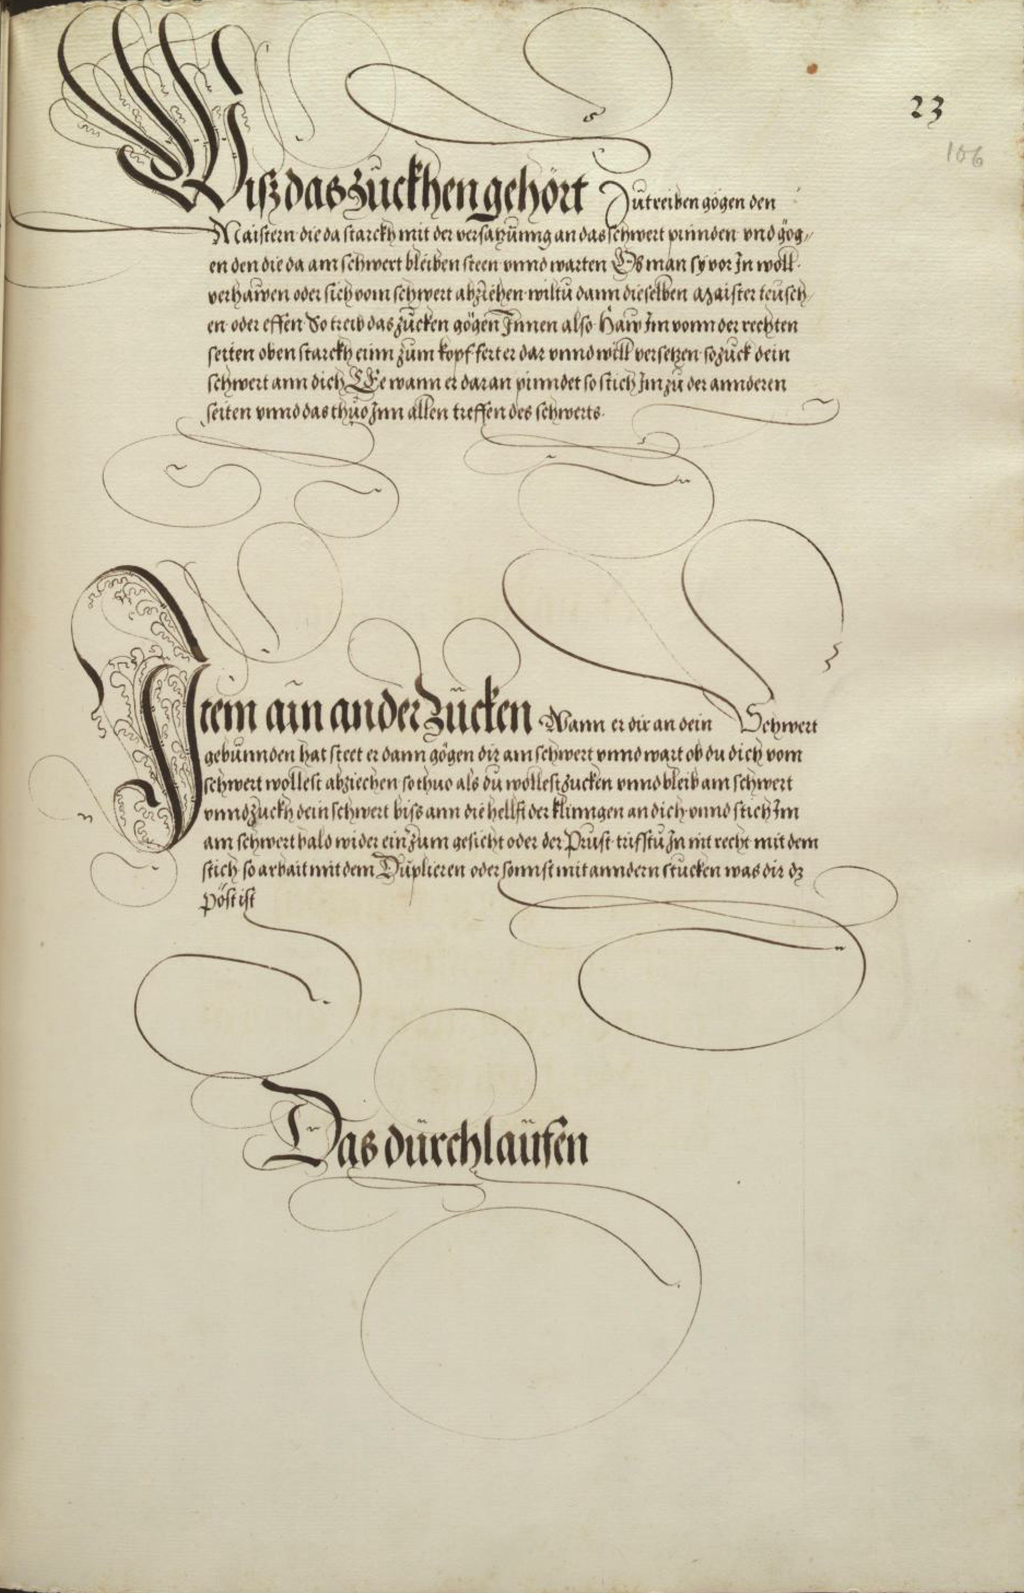 23
106
Wiß das zuckhen gehört Zu treiben gögen den
Maistern die da starckh mit der versatzũnng an das schwert pinnden vnd gög„
en den die da am schwert bleiben steen vnnd warten Ob man sy vor In wöll
verhawen oder sich vom schwert abziehen wiltu dann dieselben Maister teusch„
en oder effen So treib das zucken gögen Innen also Haw Im vonn der rechten
seiten oben starckh einn zum kopf fert er dar vnnd will versetzen so zuck dein
schwert ann dich Ee wann er daran pinndet so stich Im zu der annderen
seiten vnnd das thuo Inn allen treffen des schwerts
Item ain ander Zucken Wann er dir an dein Schwert
gebunnden hat steet er dann gögen dir am schwert vnnd wart ob du dich vom
schwert wollest abziechen so thuo als du wöllest zucken vnnd bleib am schwert
vnnd zuckh dein schwert biss ann die hellft der klinngen an dich vnnd stich Im
am schwert bald wider ein zum gesicht oder der Prust triffstu In nit recht mit dem
stich so arbait mit dem Duplieren oder sonnst mit anndern stucken was dir dz
pöst ist
Das dũrchlaũfen